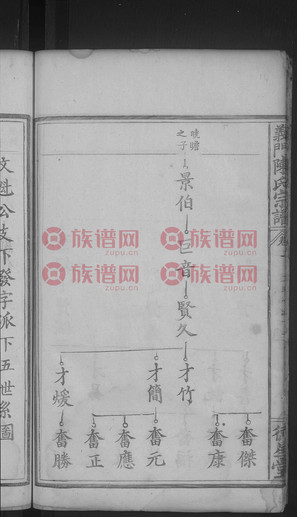 義門陳氏宗譜
曉瞻
之子
景伯
巨音
賢久
才竹
才簡
才煖
奮傑
奮康
奮元
奮應
奮正
奮勝
文魁公支下發字派下五世系圖
族谱网
zupu.cn
族谱网
zupu.cn
族谱网
zupu.cn
族谱网
zupu.cn